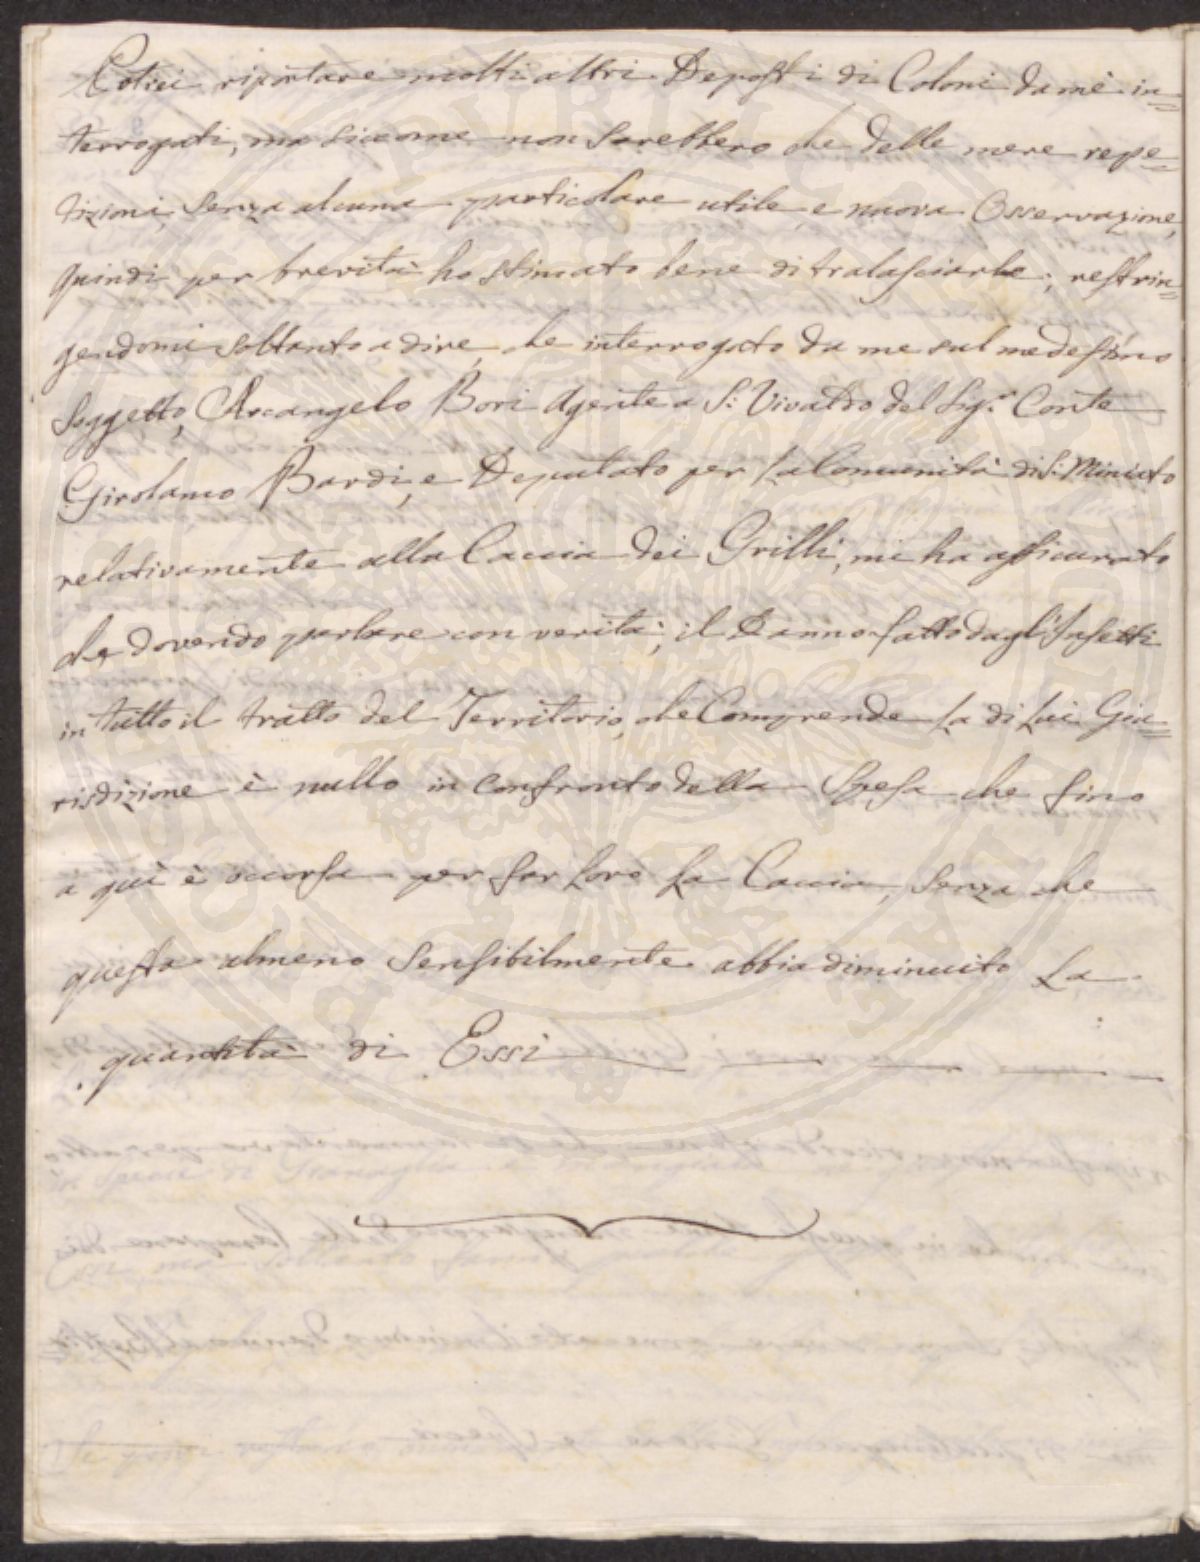 Potrei riportare molti altri Deposti di Coloni da mè in=
terrogati, ma siccome non sarebbero che delle mere repe=
tizioni, senza alcuna particolare utile, e nuova Osservazione,
quindi per brevità ho stimato bene di tralasciarle; restrin=
gendomi soltanto a dire, che interrogato da me sul medesimo
Soggetto, Arcangelo Bori Agente a S: Vivaldo del Sig.r Conte
Girolamo Bardi, e Deputato per la Comunità di S: Miniato
relativamente alla Caccia dei Grilli, mi ha assicurato
che dovendo parlare con verità; il Danno fatto dagl'Insetti
in tutto il tratto del Territorio, che Comprende la di lui Giu=
risdizione è nullo in confronto della Spesa che fino
a quì è occorsa per far loro la Caccia, senza che
questa almeno sensibilmente abbia diminuito la
quantità di Essi